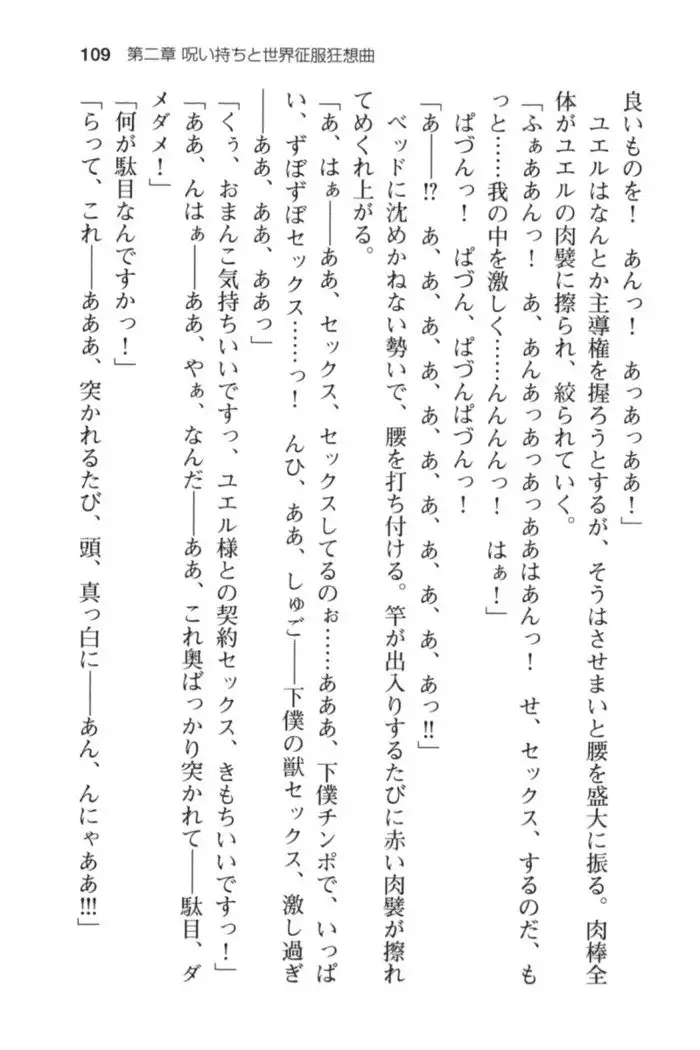 109 第二章 呪い持ちと世界征服狂想曲
良いものを！ あんっ！ あっあっああ！」
ユエルはなんとか主導権を握ろうとするが、そうはさせまいと腰を盛大に振る。肉棒全
体がユエルの肉襞に擦られ、絞られていく。
「ふぁああんっ！ あ、あんあっあっあっああはあんっ！ せ、セックス、するのだ、も
っと……我の中を激しく……んんんんっ！ はぁ！」
ぱづんっ！ ぱづん、ぱづんぱづんっ！
「あ――!? あ、あ、あ、あ、あ、あ、あ、あ、あ、あ、あっ!!」
ベッドに沈めかねない勢いで、腰を打ち付ける。竿が出入りするたびに赤い肉襞が擦れ
てめくれ上がる。
「あ、はぁ――ああ、セックス、セックスしてるのぉ……あああ、下僕チンポで、いっぱ
い、ずぽずぽセックス……っ！ んひ、ああ、しゅご――下僕の獣セックス、激し過ぎ
――ああ、ああ、ああっ」
「くぅ、おまんこ気持ちいいですっ、ユエル様との契約セックス、きもちいいですっ！」
「ああ、んはぁ――ああ、やぁ、なんだ――ああ、これ奥ばっかり突かれて――駄目、ダ
メダメ！」
「何が駄目なんですかっ！」
「らって、これ――あああ、突かれるたび、頭、真っ白に――あん、んにゃああ!!!」